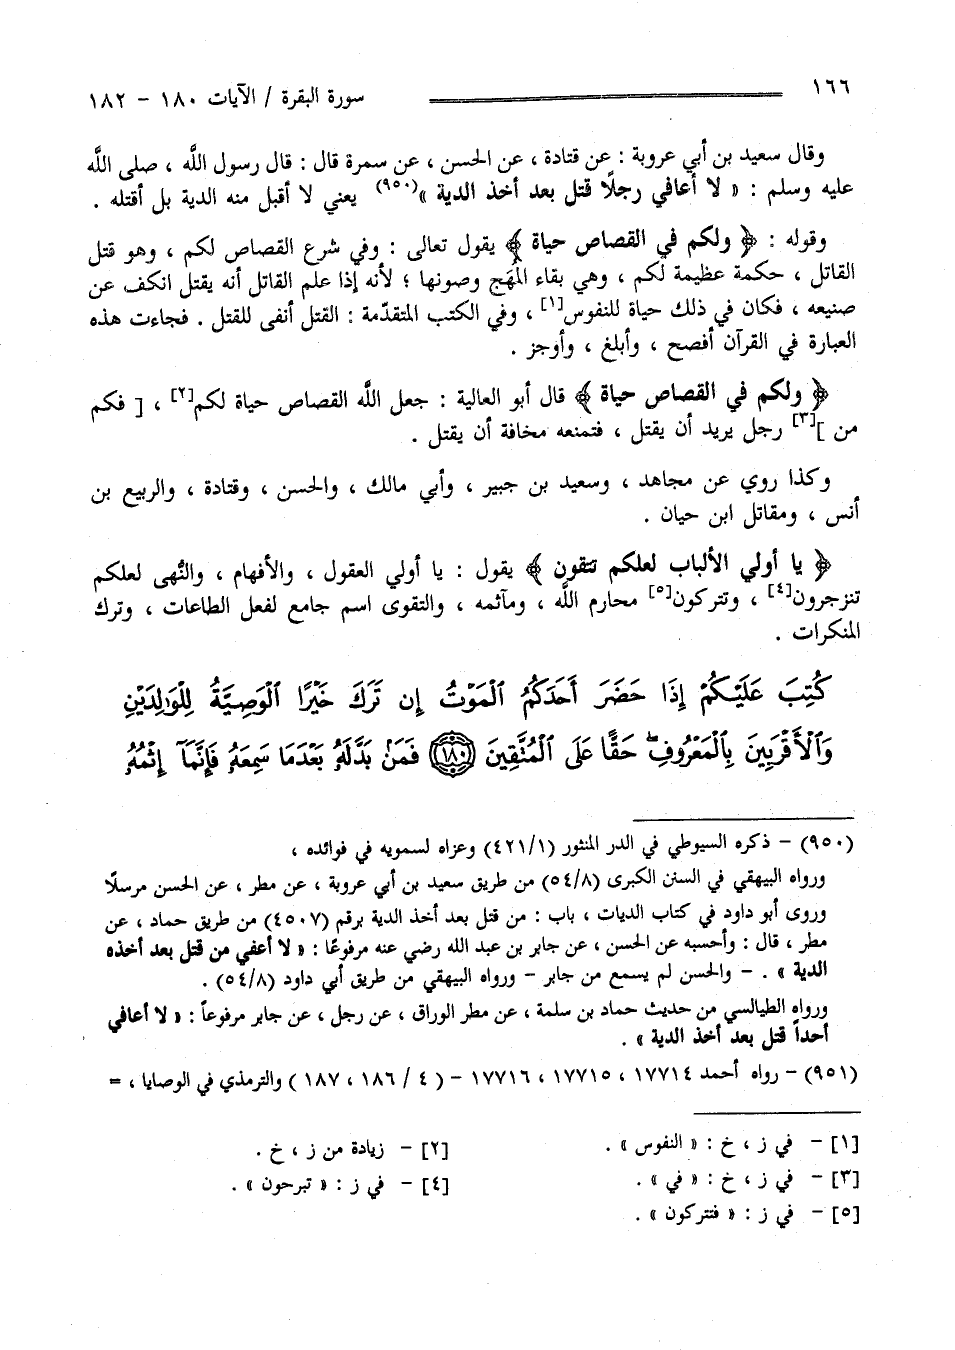 ١٦٦
سورة البقرة / الآيات ١٨٠ - ١٨٢
وقال سعيد بن أبي عروبة : عن قتادة ، عن الحسن ، عن سمرة قال : قال رسول اللَّه ، صلى الله
عليه وسلم : « لا أعافي رجلًا قتل بعد أخذ الدية »(٩٥٠) يعني لا أقبل منه الدية بل أقتله .
وقوله : ﴿ ولكم في القصاص حياة ﴾ يقول تعالى : وفي شرع القصاص لكم ، وهو قتل
القاتل ، حكمة عظيمة لكم ، وهي بقاء المُهَج وصونها ؛ لأنه إذا علم القاتل أنه يقتل انكف عن
صنيعه ، فكان في ذلك حياة للنفوس[١] ، وفي الكتب المتقدّمة : القتل أنفى للقتل . فجاءت هذه
العبارة في القرآن أفصح ، وأبلغ ، وأوجز .
﴿ ولكم في القصاص حياة ﴾ قال أبو العالية : جعل اللَّه القصاص حياة لكم[٢] ، [ فكم
من ][٣] رجل يريد أن يقتل ، فتمنعه مخافة أن يقتل .
وكذا روي عن مجاهد ، وسعيد بن جبير ، وأبي مالك ، والحسن ، وقتادة ، والربيع بن
أنس ، ومقاتل ابن حيان .
﴿ يا أولي الألباب لعلكم تتقون ﴾ يقول : يا أولي العقول ، والأفهام ، والنُّهى لعلكم
تنزجرون[٤] ، وتتركون[٥] محارم اللَّه ، ومآثمه ، والتقوى اسم جامع لفعل الطاعات ، وترك
المنكرات .
كُتِبَ عَلَيْكُمْ إِذَا حَضَرَ أَحَدَكُمُ الْمَوْتُ إِن تَرَكَ خَيْرًا الْوَصِيَّةُ لِلْوَالِدَيْنِ
وَالْأَقْرَبِينَ بِالْمَعْرُوفِ ۖ حَقًّا عَلَى الْمُتَّقِينَ ١٨٠ فَمَنْ بَدَّلَهُ بَعْدَمَا سَمِعَهُ فَإِنَّمَا إِثْمُهُ
(٩٥٠) - ذكره السيوطي في الدر المنثور (٤٢١/١) وعزاه لسمويه في فوائده ،
ورواه البيهقي في السنن الكبرى (٥٤/٨) من طريق سعيد بن أبي عروبة ، عن مطر ، عن الحسن مرسلًا
وروى أبو داود في كتاب الديات ، باب : من قتل بعد أخذ الدية برقم (٤٥٠٧) من طريق حماد ، عن
مطر ، قال : وأحسبه عن الحسن ، عن جابر بن عبد الله رضي عنه مرفوعًا : « لا أعفي من قتل بعد أخذه
الدية » . - والحسن لم يسمع من جابر - ورواه البيهقي من طريق أبي داود (٥٤/٨) .
ورواه الطيالسي من حديث حماد بن سلمة ، عن مطر الوراق ، عن رجل ، عن جابر مرفوعاً : « لا أعافي
أحداً قتل بعد أخذ الدية » .
(٩٥١) - رواه أحمد ١٧٧١٤ ، ١٧٧١٥ ، ١٧٧١٦ - ( ٤ / ١٨٦ ، ١٨٧ ) والترمذي في الوصايا ، =
[١] - في ز ، خ : « النفوس » .
[٢] - زيادة من ز ، خ .
[٣] - في ز ، خ : « في » .
[٤] - في ز : « تبرحون » .
[٥] - في ز : « فتتركون » .